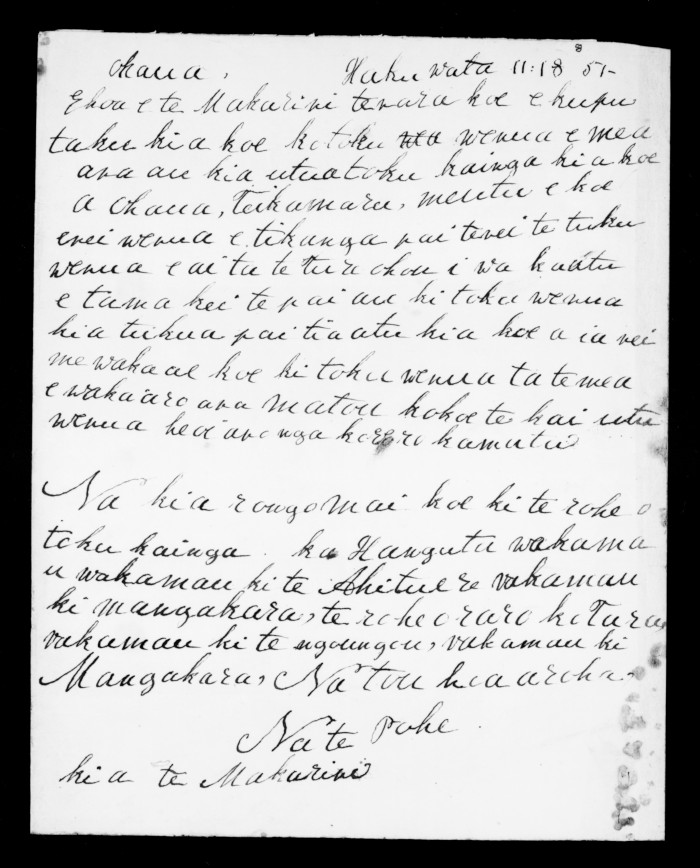 Ohaua, Hakuwata 11: 18 51-
8
Ehoa e te Makarini tenara koe e kupu
taku kia koe ko toku wenua e mea
ana au kia utua toku kainga kia koe
a Ohaua, Teikamaru, mentu e koe
enei wenua e tikanga pai tenei te tuku
wenua e ai ta te Ture ohou i wa kaatu
e tama kei te pai au ki toku wenua
kia tukua pai tiaatu kia koe a ia nei
me wakaae koe ki toku wenua ta te mea
e wakaaro ana matou kokoe te kai utu
wenua heoi ano nga korero kamutu
Na kia rongo mai koe ki te rohe o
toku kainga. ka Hangutu wakama
u wakamau ki te Ahituere vakamau
ki mangakara, te rohe o raro ko Tara
vakamau ki te ngoungou, vakamau ki
Mangakara, Na tou hoa aroha.
Na te Pohe.
kia te Makarini